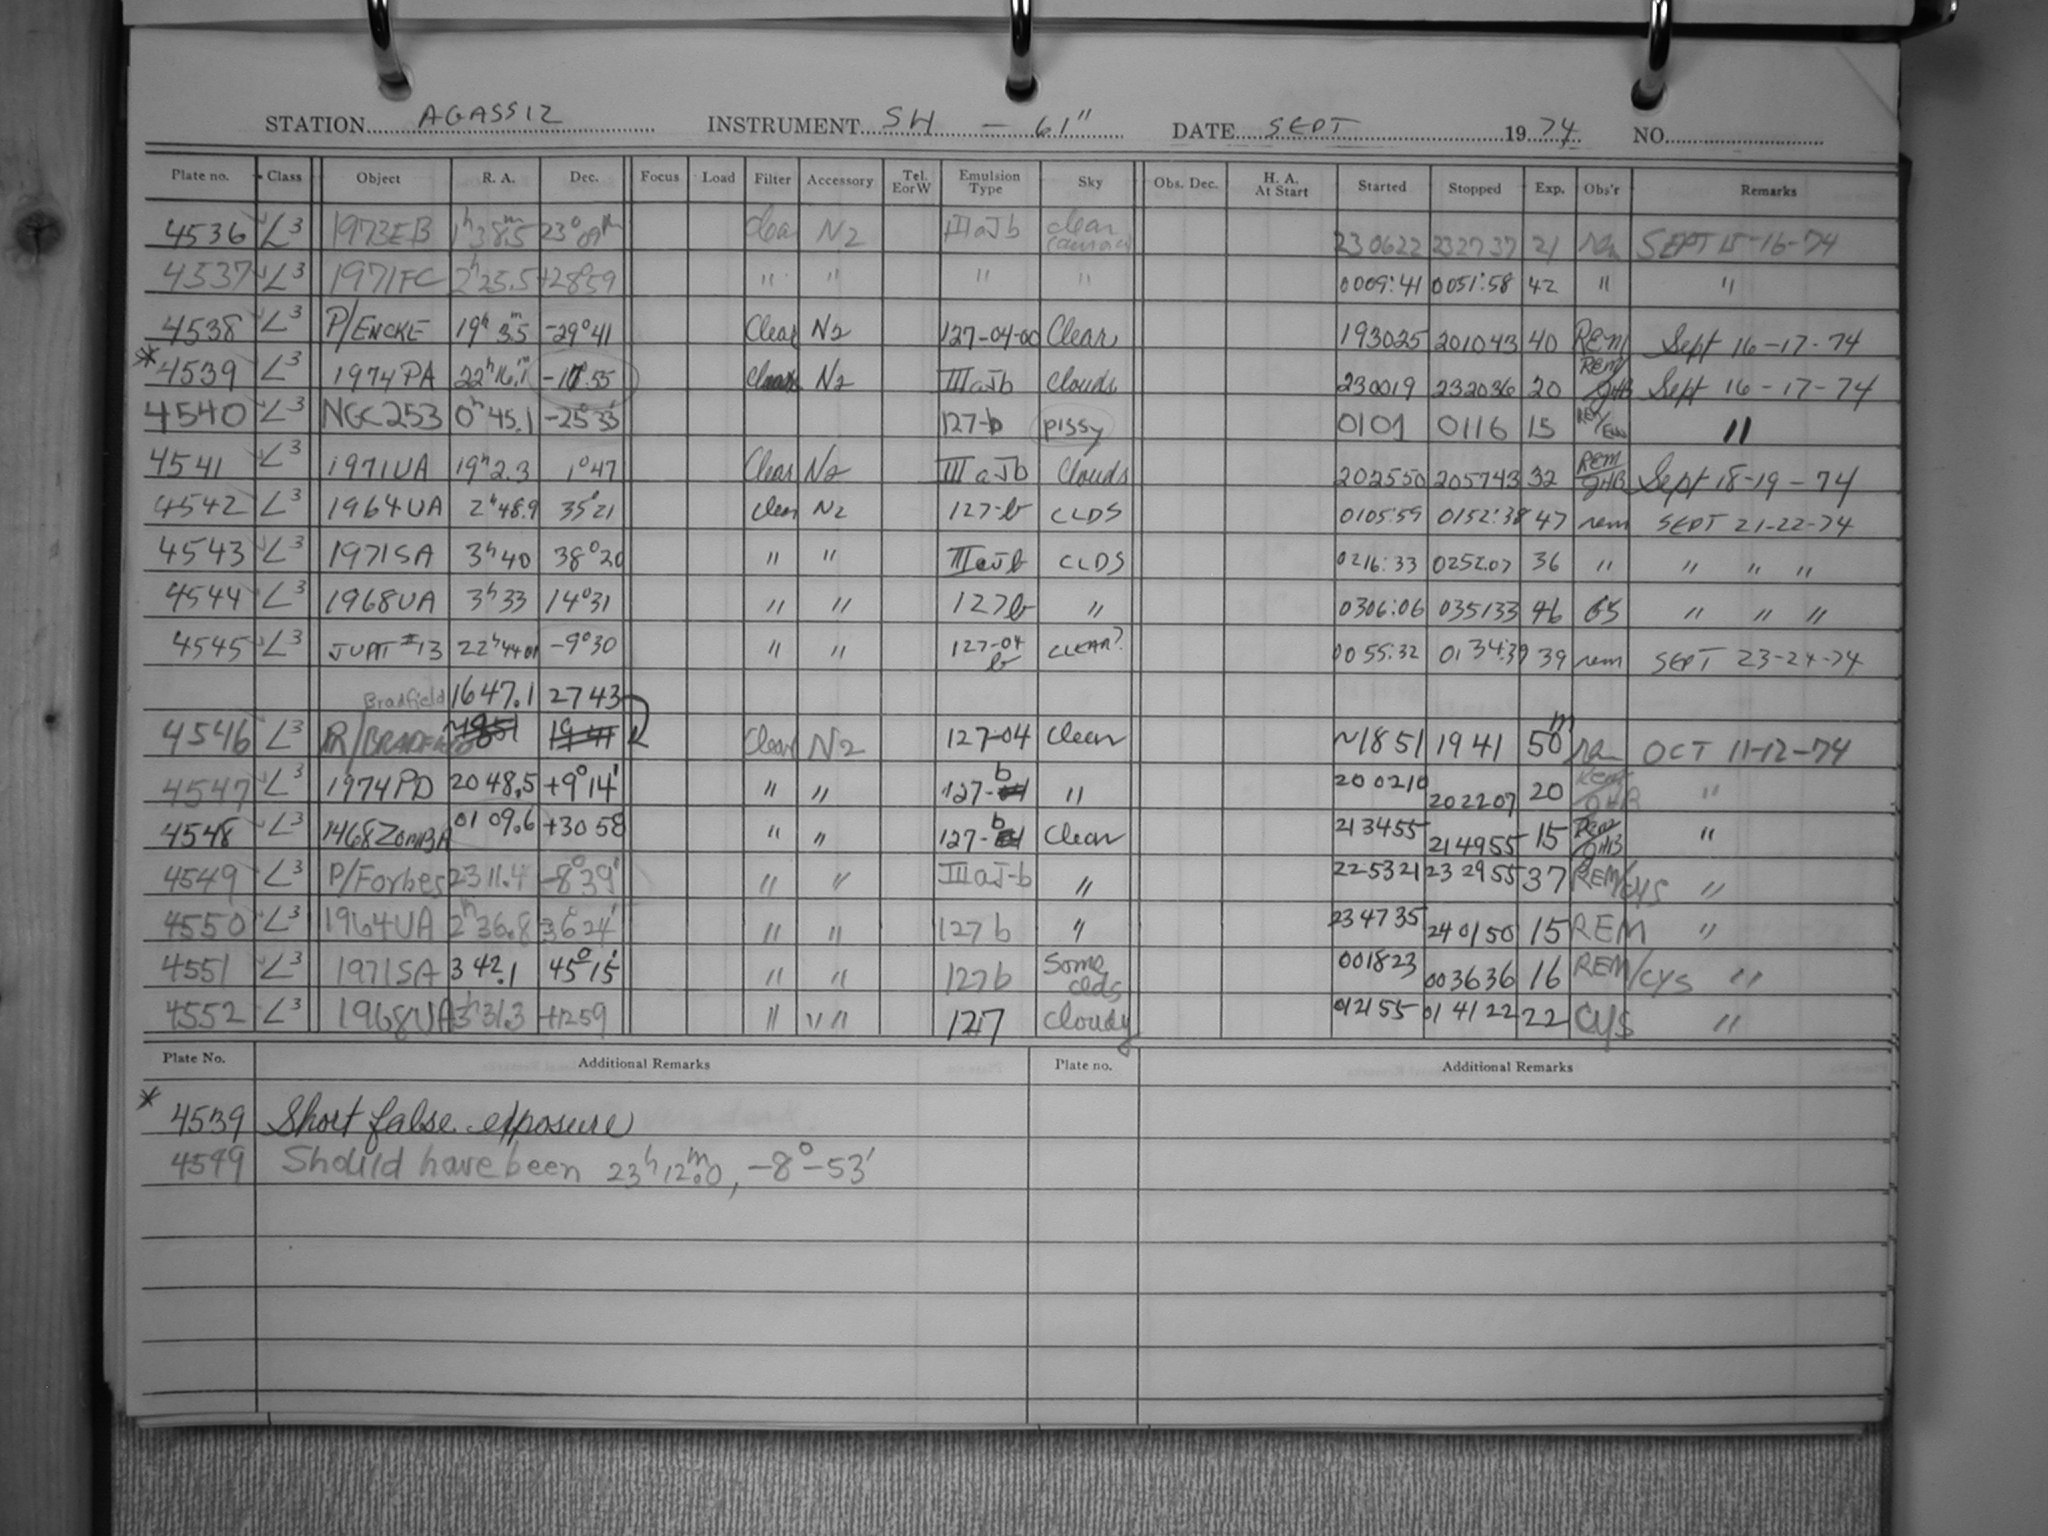 STATION AGASSIZ INSTRUMENT SH - 61" DATE SEPT 1974 NO.
Plate no. Class Object R. A. Dec. Focus Load Filter Accessory Tel. E or W Emulsion Type Sky Obs. Dec. H. A. At Start Started Stopped Exp. Obs'r Remarks
4536 L3 1973EB 1h38.5m 23° Clear N2 IIIaJb clear 230622 232737 21 rem SEPT 15-16-74
4537 L3 1971FC 2h25.5 +28°59 " " " " 0009:41 0051:58 42 " "
4538 L3 P/ENCKE 19h 3.5m -29°41 Clear N2 127-04-00 Clear 193025 201043 40 REM Sept 16-17-74
*4539 L3 1974PA 22h16.1m Clear N2 IIIaJb Clouds 230019 232036 20 REM/GHB Sept 16-17-74
4540 L3 NGC253 0h45.1 -25°33' 127-b pissy 0101 0116 15 REM/ "
4541 L3 1971UA 19h2.3 1°47 Clear N2 IIIaJb Clouds 202550 205743 32 REM/GHB Sept 18-19-74
4542 L3 1964UA 2h48.9 35°21 Clear N2 127-b CLDS 0105:59 0152:38 47 rem SEPT 21-22-74
4543 L3 1971SA 3h40 38°20 " " IIIaJb CLDS 0216:33 025207 36 " " " "
4544 L3 1968UA 3h33 14°31 " " 127b " 0306:06 035133 46 " " "
4545 L3 JUPIT #13 22h4401 -9°30 " " 127-04 b CLEAR? 0055:32 0134:39 39 rem SEPT 23-24-74
Bradfield 1647.1 2743
4546 L3 P/BRADFIELD ~1851 1941 Clear N2 127-04 Clear ~1851 1941 50m rem OCT 11-12-74
4547 L3 1974PD 2048.5 +9°14' " " 127-b " 200210 202207 20 Rem/GHB "
4548 L3 1468ZOMBA 0109.6 +3058 " " 127-b Clear 213455 214955 15 Rem/GHB "
4549 L3 P/Forbes 2311.4 -8°39' " " IIIaJ-b " 225321 232955 37 REM/CYS "
4550 L3 1964UA 2h36.8 36°24' " " 127b " 234735 240150 15 REM "
4551 L3 1971SA 342.1 45°15' " " 127b Some clds 001823 003636 16 REM/CYS "
4552 L3 1968UA 3h31.3 +1259 " " " 127 Cloudy 012155 014122 22 CYS "
Plate No. Additional Remarks Plate no. Additional Remarks
* 4539 Short false exposure
4549 Should have been 23h12m.0, -8°-53'